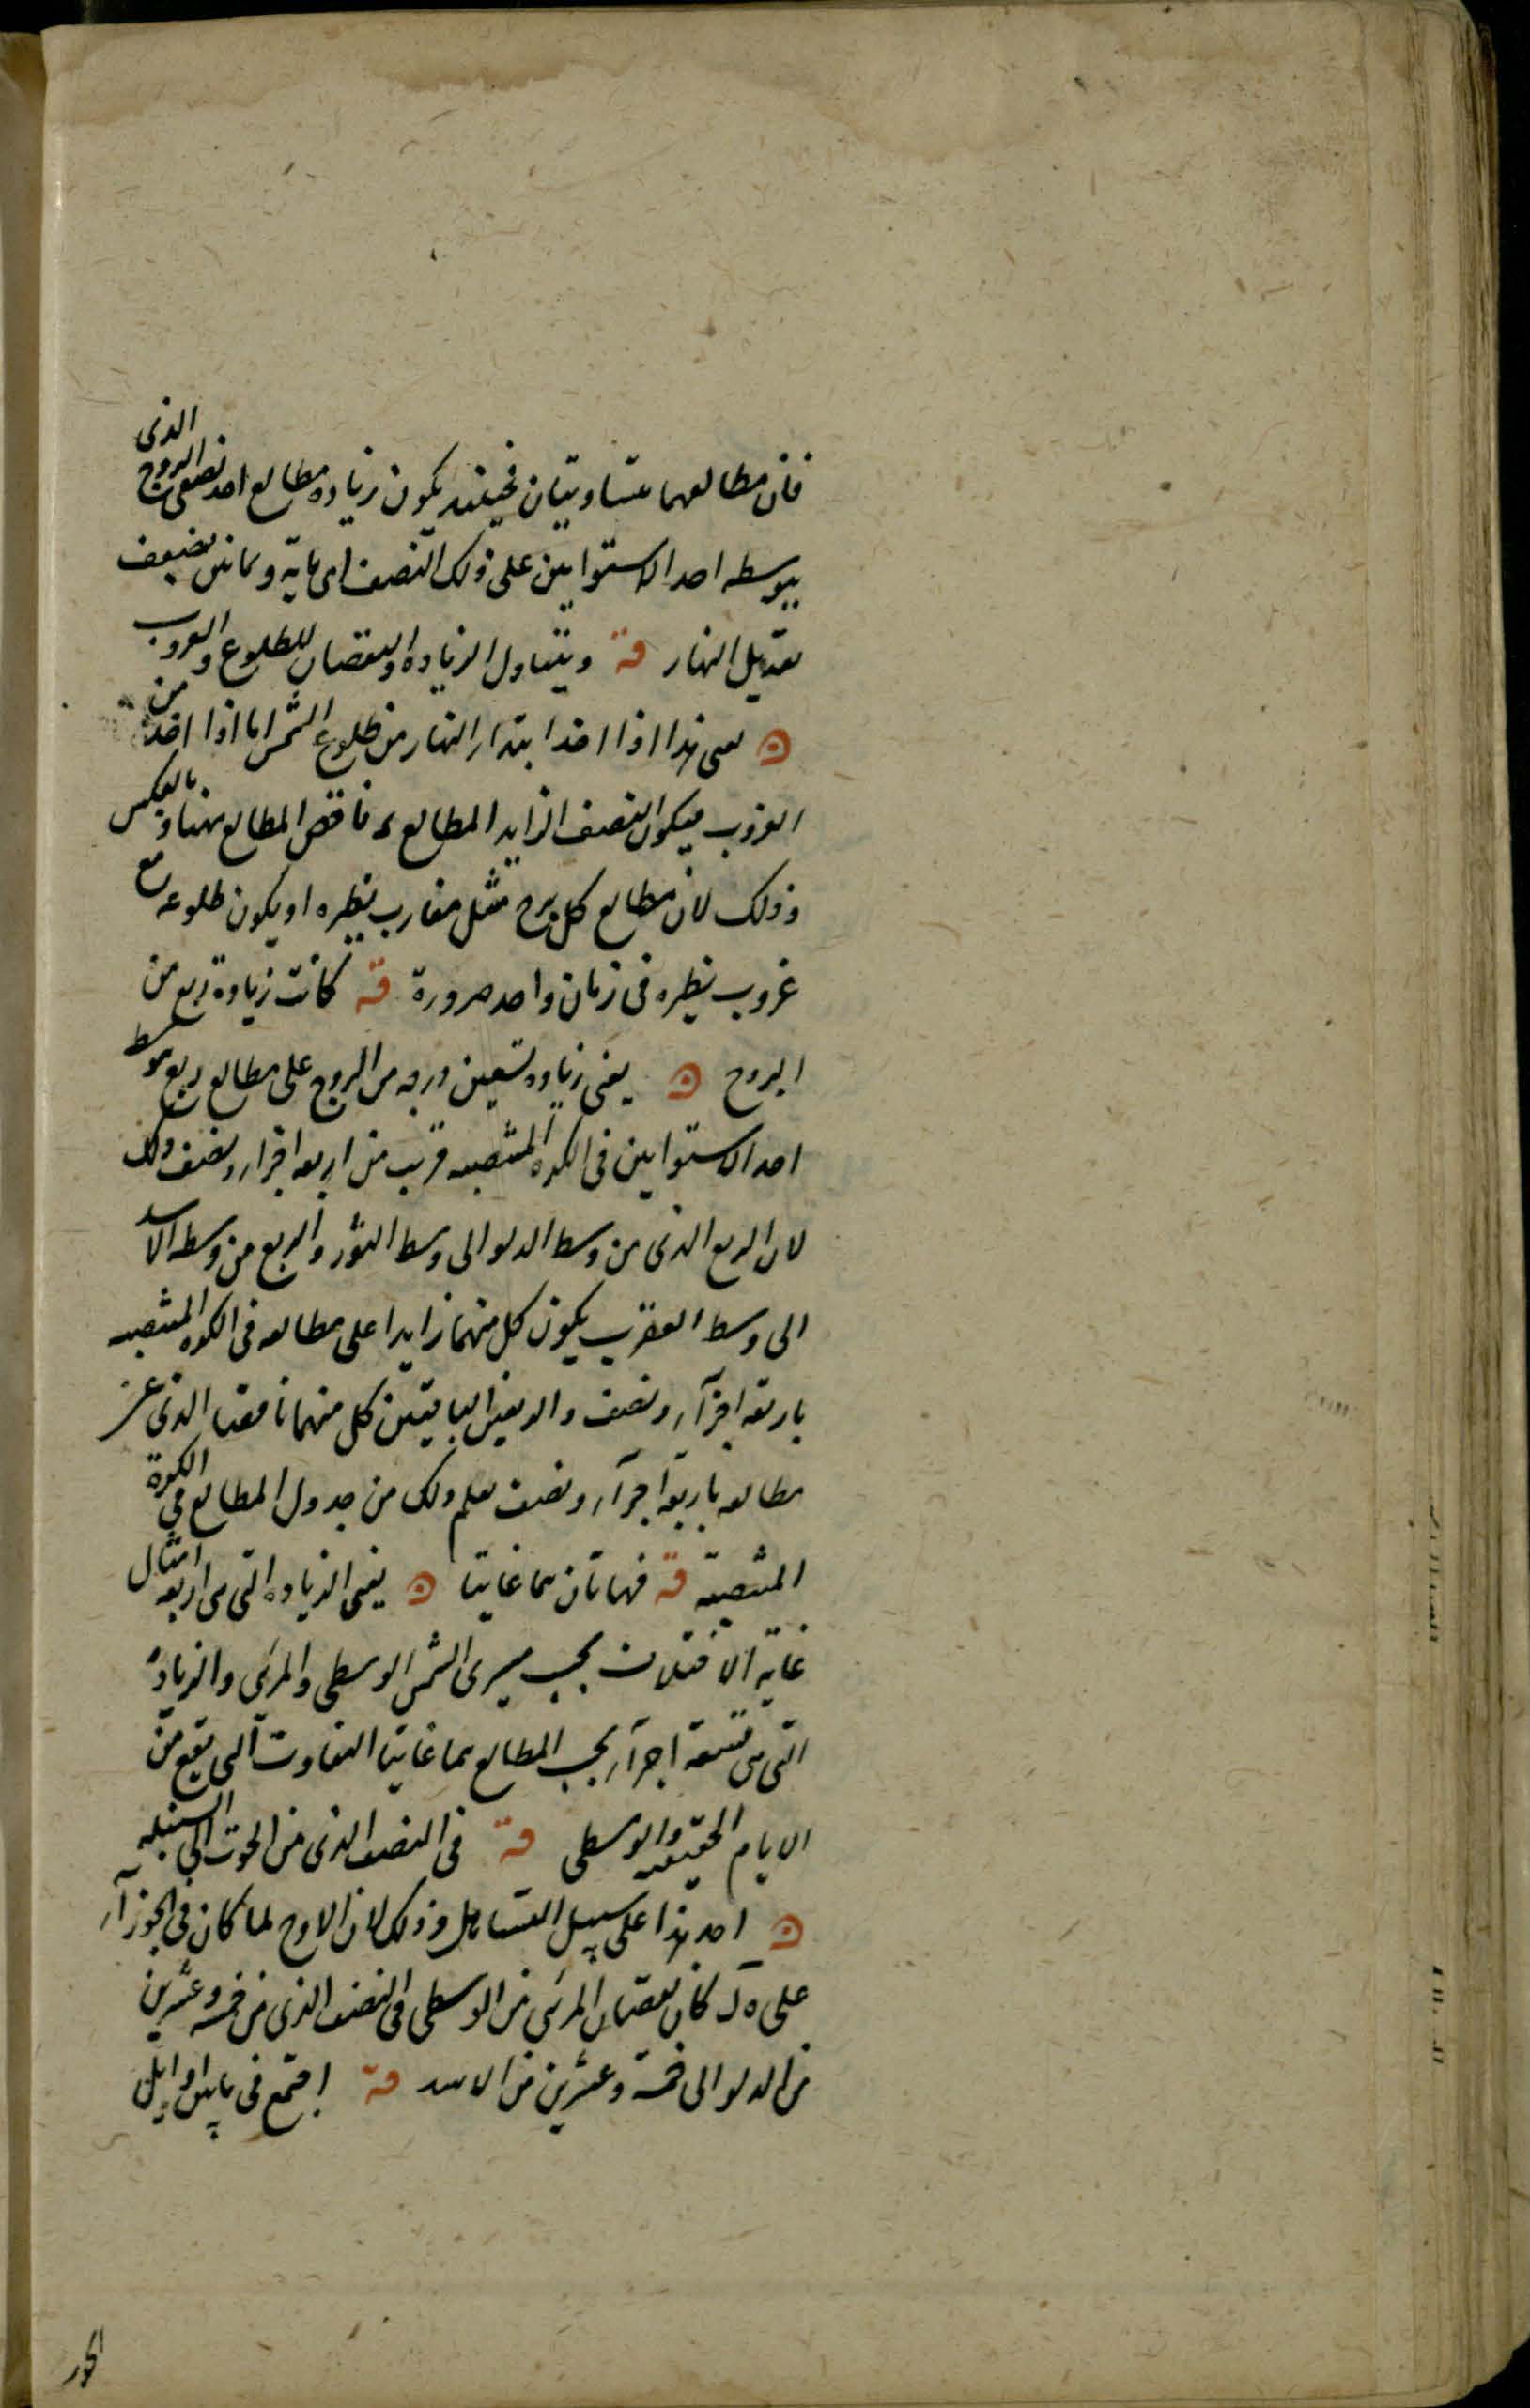 فان مطالعهما متساويتان فحينئذ يكون زياده مطالع احد نصفى البروج الذى
يتوسطه احد الاستوايين على ذلك النصف اى ماية وثمانين ضعف
تعديل النهار قه ويتبادل الزياده والنقصان للطلوع والغروب
ن يعنى هذا اذا اخذ ابتدآء النهار من طلوع الشمس اما اذا اخذ من
الغروب فيكون النصف الزايد المطالع ناقص المطالع هناك وبالعكس
وذلك لان مطالع كل برج مثل مغارب نظيره اذ يكون طلوعه مع
غروب نظيره فى زمان واحد ضرورة قه كانت زيادة ربع من
البروج ن يعنى زياده تسعين درجه من البروج على مطالع ربع يتوسط
احد الاستوايين فى الكره المنتصبه قريب من اربعه اجزاء ونصف وذلك
لان الربع الذى من وسط الدلو الى وسط الثور والربع من وسط الاسد
الى وسط العقرب يكون كل منهما زايدا على مطالعه فى الكره المنتصبه
باربعة اجزآء ونصف والربعين الباقيتين كل منهما ناقصا الذى عن
مطالعه باربعة اجزآء ونصف يعلم ذلك من جدول المطالع فى الكرة
المنتصبة قه فهاتان هما غايتا ن يعنى الزياده التى هى اربعه امثال
غاية الاختلاف بحسب مسيرى الشمس الوسطى والمرئى والزيادة
التى هى تسعة اجزآء بحسب المطالع هما غايتا التفاوت التى تقع من
الايام الحقيقيه والوسطى قه فى النصف الذى من الحوت الى السنبله
ن احد هذا على سبيل التساهل وذلك لان الاوج لما كان فى الجوزآء
على كان نقصان المرئى من الوسطى فى النصف الذى من خمسه وعشرين
من الدلو الى خمسة وعشرين من الاسد قه اجتمع فى مابين اوايل